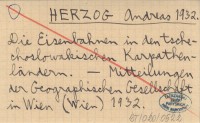 HERZOG Andreas 1932.
Die Eisenbahnen in den tsche-
choslowakischen Karpathen-
ländern. — Mitteilungen
der Geographischen Gesellschaft
in Wien (Wien) 1932.